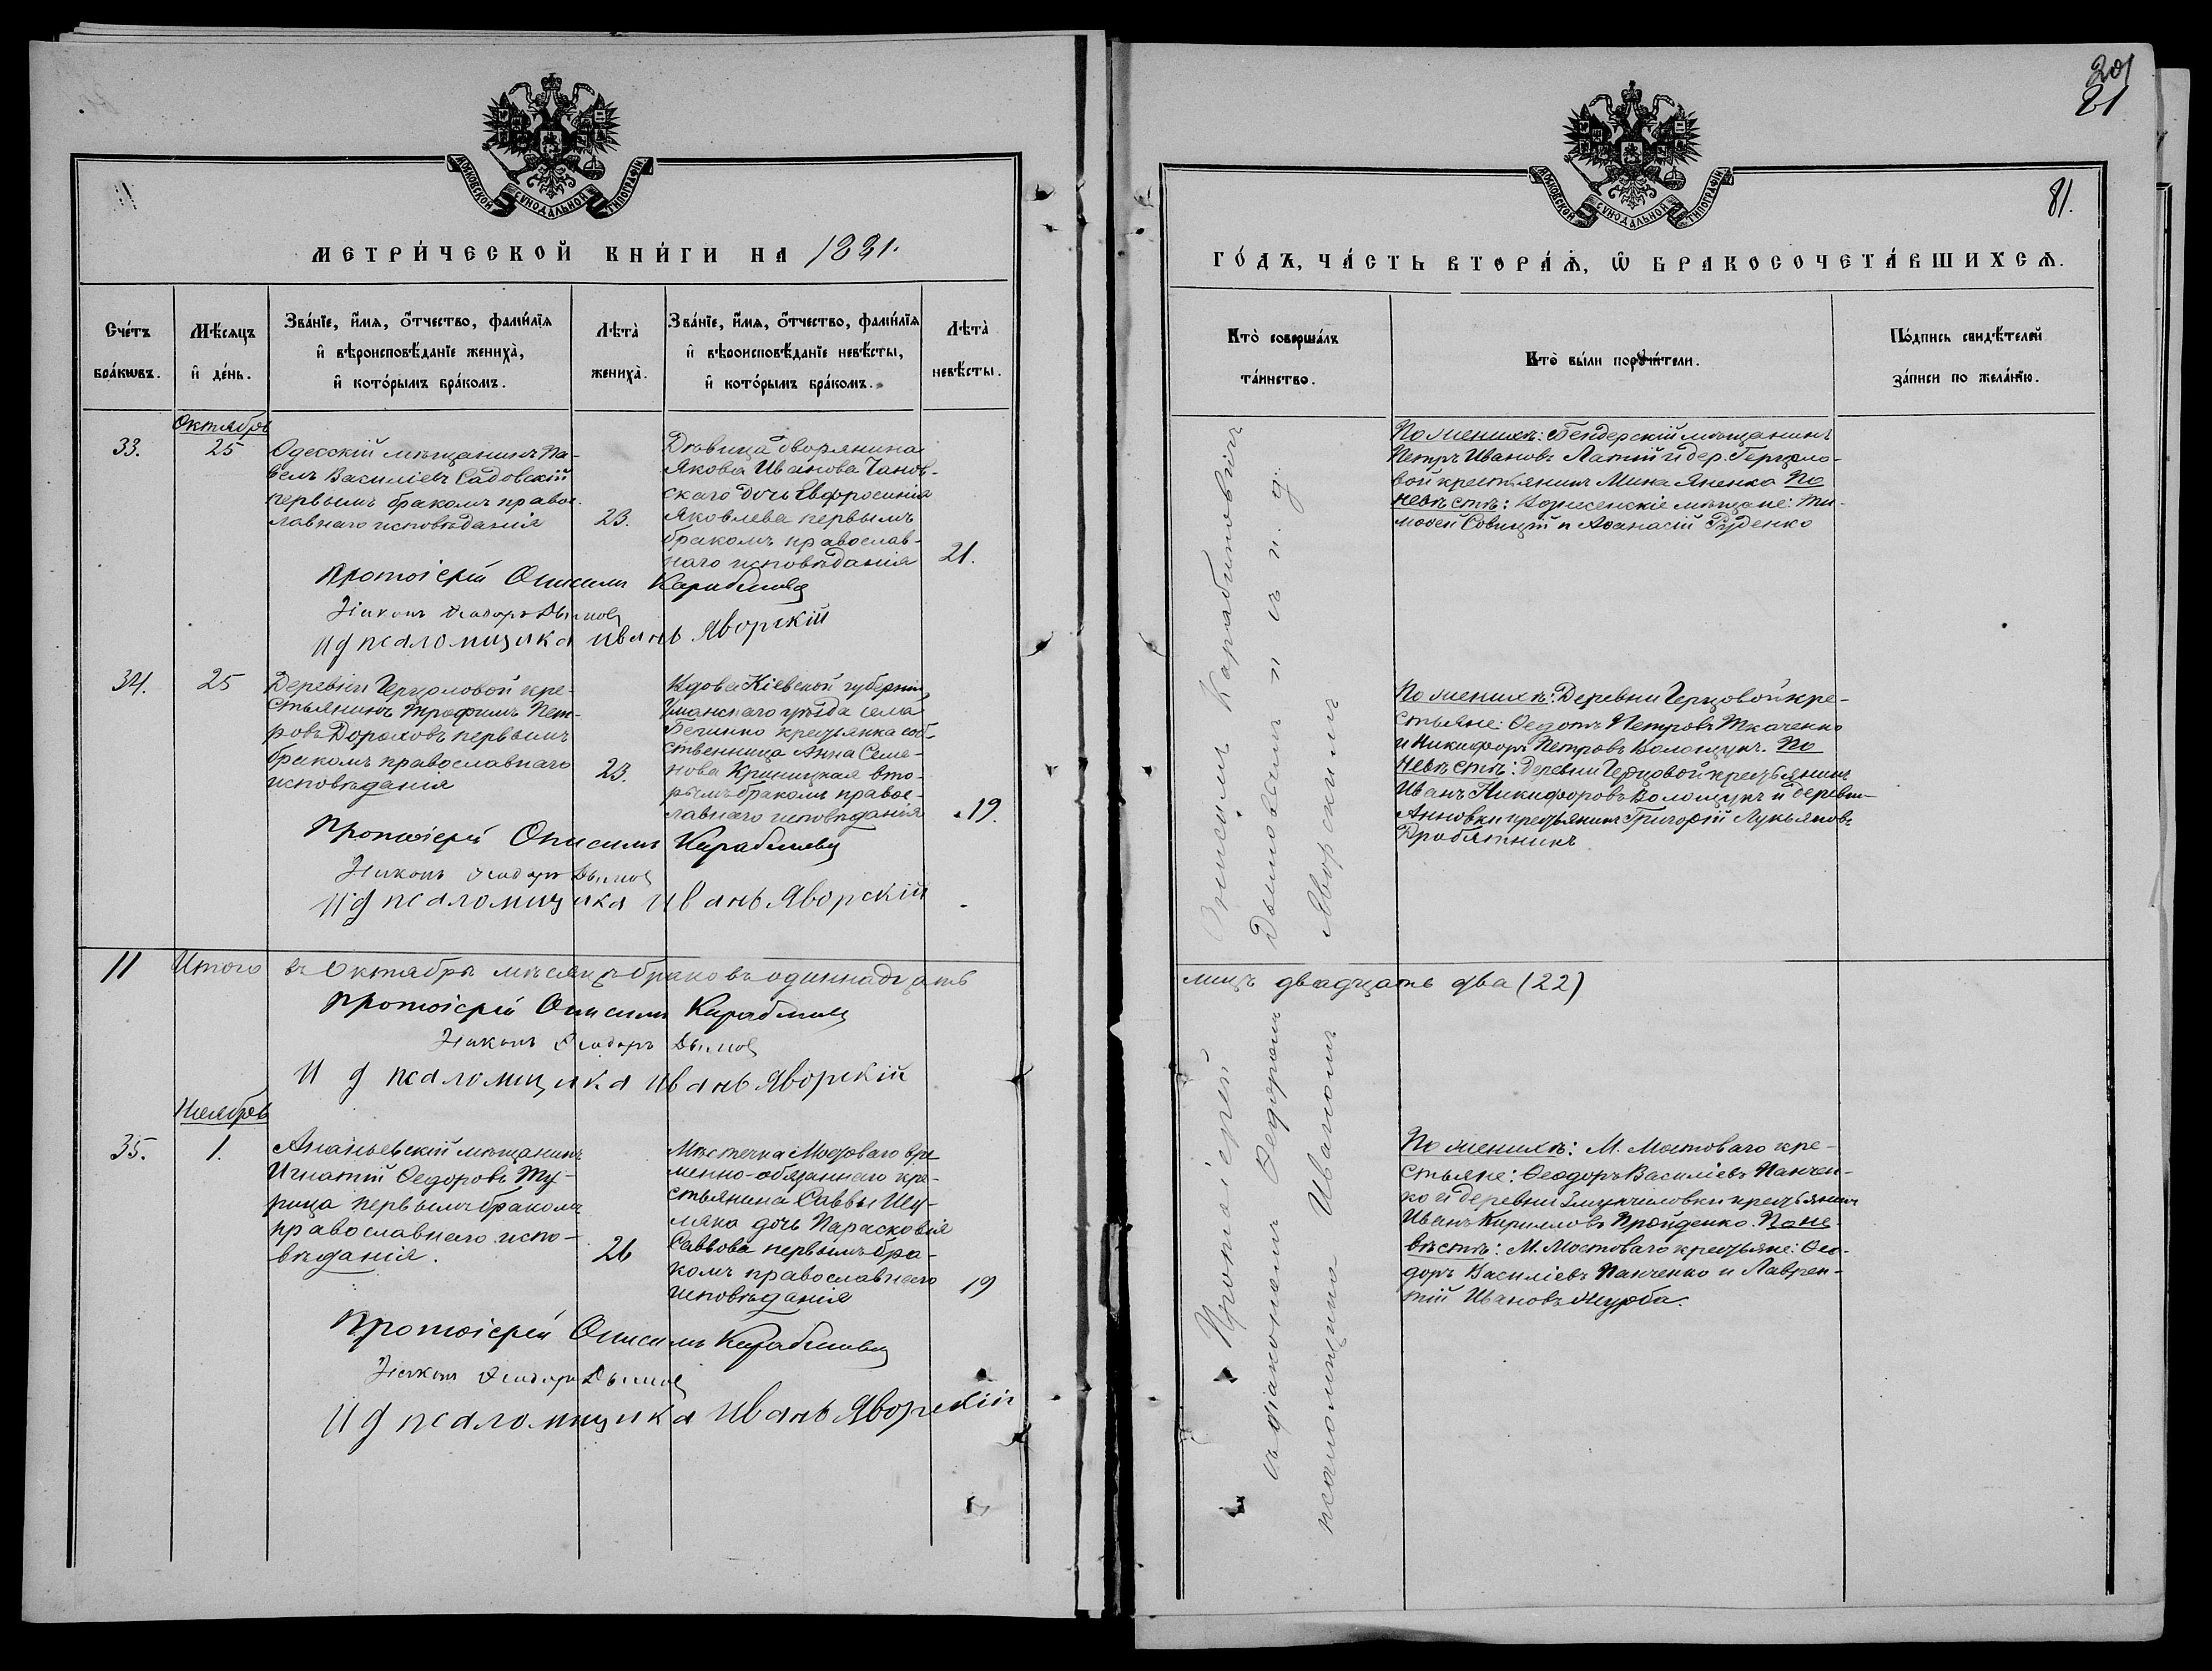 МОСКОВСКОЙ СѴНОДАЛЬНОЙ ТИПОГРАФІИ
МЕТРИ́ЧЕСКОЙ КНИ́ГИ НА 1881.
Сче́тъ бра́кѡвъ.
Мѣ́сяцъ и҆ де́нь.
Зва́нїе, и҆́мѧ, ѻ҆́тчество, фами́лїѧ
и҆ вѣроисповѣ́данїе жениха̀,
и҆ кото́рымъ бра́комъ.
Лѣ́та жениха̀.
Зва́нїе, и҆́мѧ, ѻ҆́тчество, фами́лїѧ
и҆ вѣроисповѣ́данїе невѣ́сты,
и҆ кото́рымъ бра́комъ.
Лѣ́та невѣ́сты.
Октябрь
33.
25
Одесскій мѣщанинъ Па-
велъ Василіевъ Садовскій
первымъ бракомъ правос-
лавнаго исповѣданія
23.
Дѣвица дворянина
Якова Иванова Чанов-
скаго дочь Евфросинія
Яковлева первымъ
бракомъ православ-
наго исповѣданія
21.
Протоіерей Онисимъ
Діаконъ Феодоръ
И д псаломщика Иванъ Яворскій
34.
25
Деревни Герцоловой кре-
стьянинъ Трофимъ Пет-
ровъ Дороховъ первымъ
бракомъ православнаго
исповѣданія
23.
Вдова Кіевской губерніи
Уманскаго уѣзда села
крестьянка соб-
ственница Анна Семе-
нова Криницкая вто-
рымъ бракомъ правос-
лавнаго исповѣданія
19.
Протоіерей Онисимъ
Діаконъ Феодоръ
И д псаломщика Иванъ Яворскій
11 Итого въ Октябрѣ мѣсяцѣ браковъ одиннадцать
Протоіерей Онисимъ
Діаконъ Феодоръ
И д псаломщика Иванъ Яворскій
Ноябрь
35.
1.
Ананьевскій мѣщанинъ
Игнатій Ѳедоровъ Ту-
рица первымъ бракомъ
православнаго испо-
вѣданія.
26
Мѣстечка Мостоваго вре-
менно-обязаннаго кре-
стьянина Саввы Шу-
ляка дочь Парасковія
Саввова первымъ бра-
комъ православнаго
исповѣданія
19
Протоіерей Онисимъ
Діаконъ Феодоръ
И д псаломщика Иванъ Яворскій
21
МОСКОВСКОЙ СѴНОДАЛЬНОЙ ТИПОГРАФІИ
81.
ГО́ДЪ, ЧА́СТЬ ВТОРА́Ѧ, Ѡ҆ БРАКОСОЧЕТА́ВШИХСѦ.
Кто̀ соверша́лъ та́инство.
Кто̀ бы́ли порꙋчи́тели.
По́дпись свидѣ́телей за́писи по жела́нїю.
Протоіерей Онисимъ Карабиновичъ
съ діакономъ Ѳедоромъ Дымовымъ и и. д.
псаломщика Иваномъ Яворскимъ
По женихѣ: Бендерскій мѣщанинъ
Петръ Ивановъ Латий и дер. Герцоло-
вой крестьянинъ Мина Яненко По
невѣстѣ: Вознесенскіе мѣщане: Ти-
моѳей Совицкій и Аѳанасій Руденко
По женихѣ: Деревни Герцовой кре-
стьяне: Ѳедотъ Петровъ Ткаченко
и Никифоръ Петровъ Волощукъ. По
невѣстѣ: Деревни Герцовой крестьянинъ
Иванъ Никифоровъ Волощукъ и деревни
Анновки крестьянинъ Григорій Лукьяновъ
Дробятникъ
лицъ двадцать два (22)
По женихѣ: М. Мостоваго кре-
стьяне: Ѳеодоръ Василіевъ Панчен-
ко и деревни крестьянинъ
Иванъ Кирилловъ Пройденко. По не-
вѣстѣ: М. Мостоваго крестьяне: Ѳео-
доръ Василіевъ Панченко и Лаврен-
тій Ивановъ Журба.